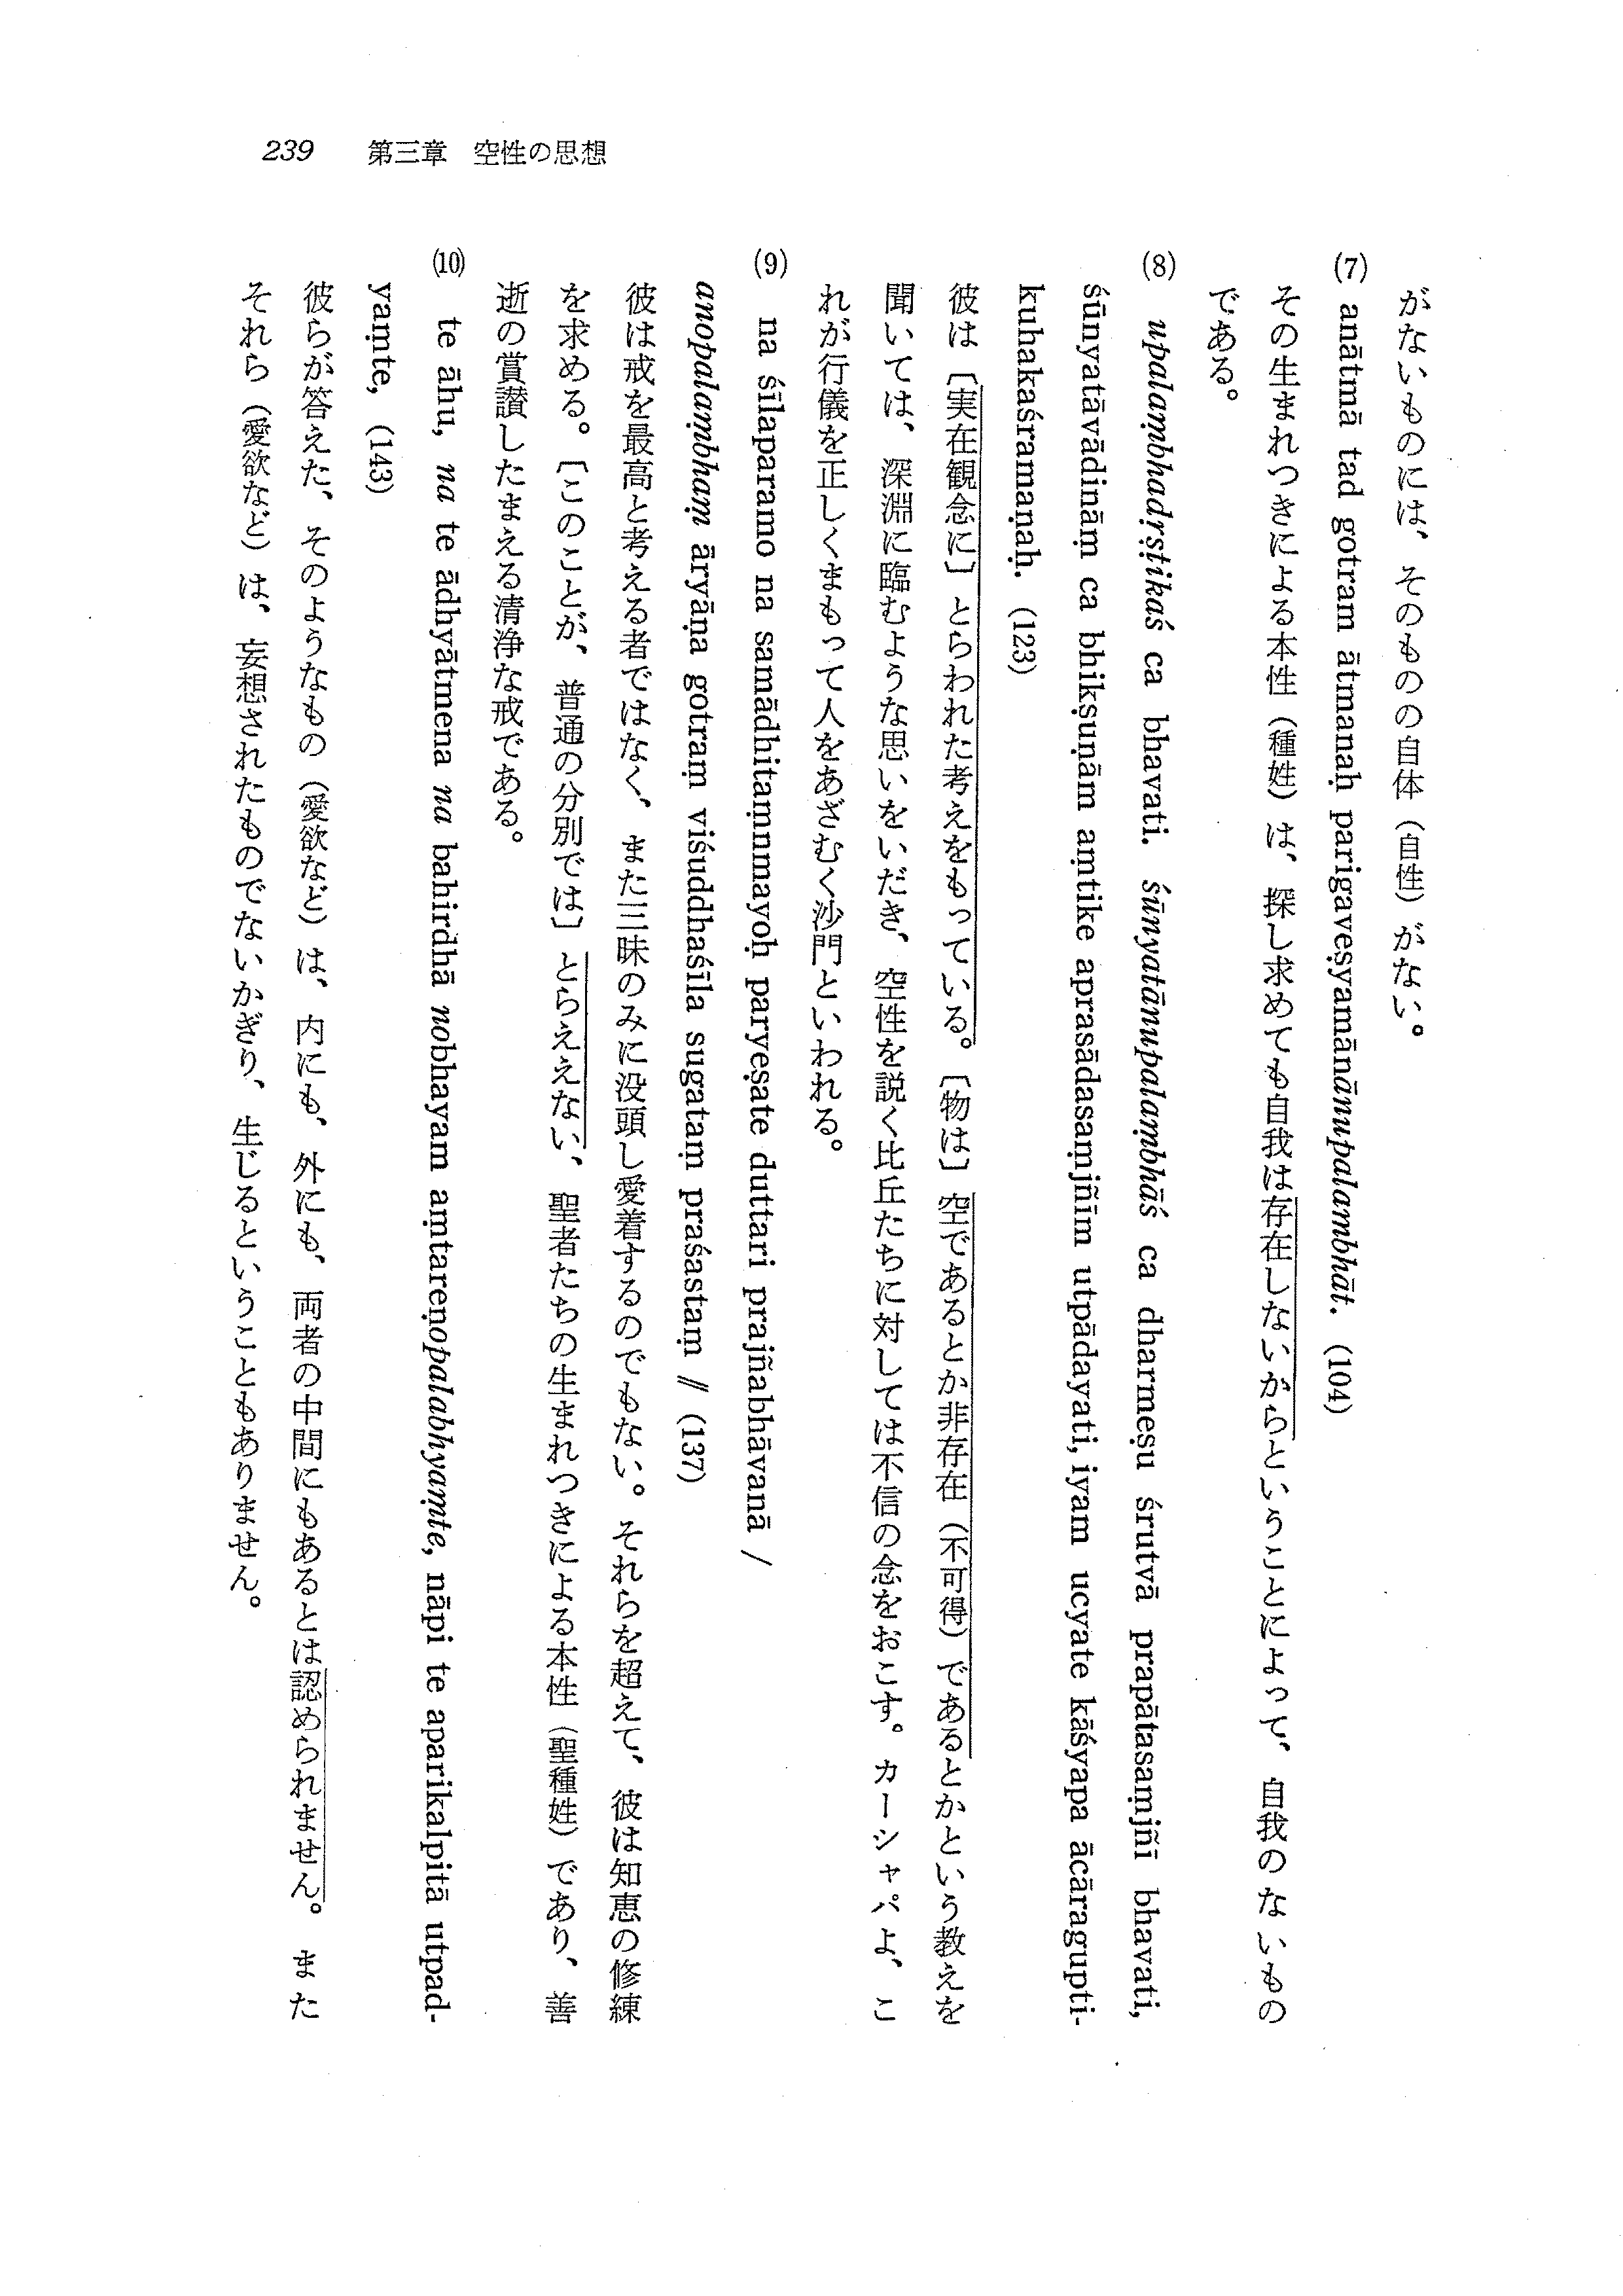 239 第三章 空性の思想
がないものには、そのものの自体（自性）がない。
(7) anātmā tad gotram ātmanaḥ parigaveṣyamānānupalambhāt. (104)
その生まれつきによる本性（種姓）は、探し求めても自我は存在しないからということによって、自我のないもの
である。
(8) upalaṃbhadṛṣṭikaś ca bhavati. śūnyatānupalaṃbhāś ca dharmeṣu śrutvā prapātasaṃjñī bhavati,
śūnyatāvādināṃ ca bhikṣuṇām aṃtike aprasādasaṃjñīm utpādayati, iyam ucyate kāśyapa ācāragupti-
kuhakaśramaṇaḥ. (123)
彼は〔実在観念に〕とらわれた考えをもっている。〔物は〕空であるとか非存在（不可得）であるとかという教えを
聞いては、深淵に臨むような思いをいだき、空性を説く比丘たちに対しては不信の念をおこす。カーシャパよ、こ
れが行儀を正しくまもって人をあざむく沙門といわれる。
(9) na śīlaparamo na samādhitaṃnmayoḥ paryeṣate duttari prajñabhāvanā /
anopalaṃbhaṃ āryāṇa gotraṃ viśuddhaśīla sugataṃ praśastaṃ // (137)
彼は戒を最高と考える者ではなく、また三昧のみに没頭し愛着するのでもない。それらを超えて、彼は知恵の修練
を求める。〔このことが、普通の分別では〕とらええない、聖者たちの生まれつきによる本性（聖種姓）であり、善
逝の賞讃したまえる清浄な戒である。
(10) te āhu, na te ādhyātmena na bahirdhā nobhayam aṃtareṇopalabhyaṃte, nāpi te aparikalpitā utpad-
yaṃte, (143)
彼らが答えた、そのようなもの（愛欲など）は、内にも、外にも、両者の中間にもあるとは認められません。また
それら（愛欲など）は、妄想されたものでないかぎり、生じるということもありません。